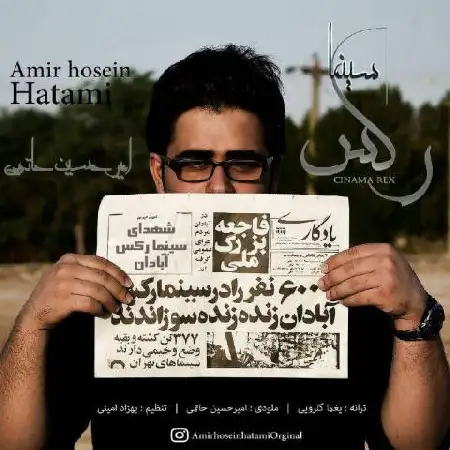 Amir hosein
Hatami
امیرحسین حاتمی
سینما
رکس
CINAMA REX
شهدای
سینما رکس
آبادان
فاجعه
بزرگ
ملی
یادگاری
۶۰۰ نفر را در سینما رکس
آبادان زنده زنده سوزاندند
۳۷۷ تن کشته و بقیه
وضع وخیمی دارند
سینماهای تهران
ترانه : یغما گلرویی | ملودی : امیرحسین حاتمی | تنظیم : بهزاد امینی
AmirhoseinhatamiOrginal